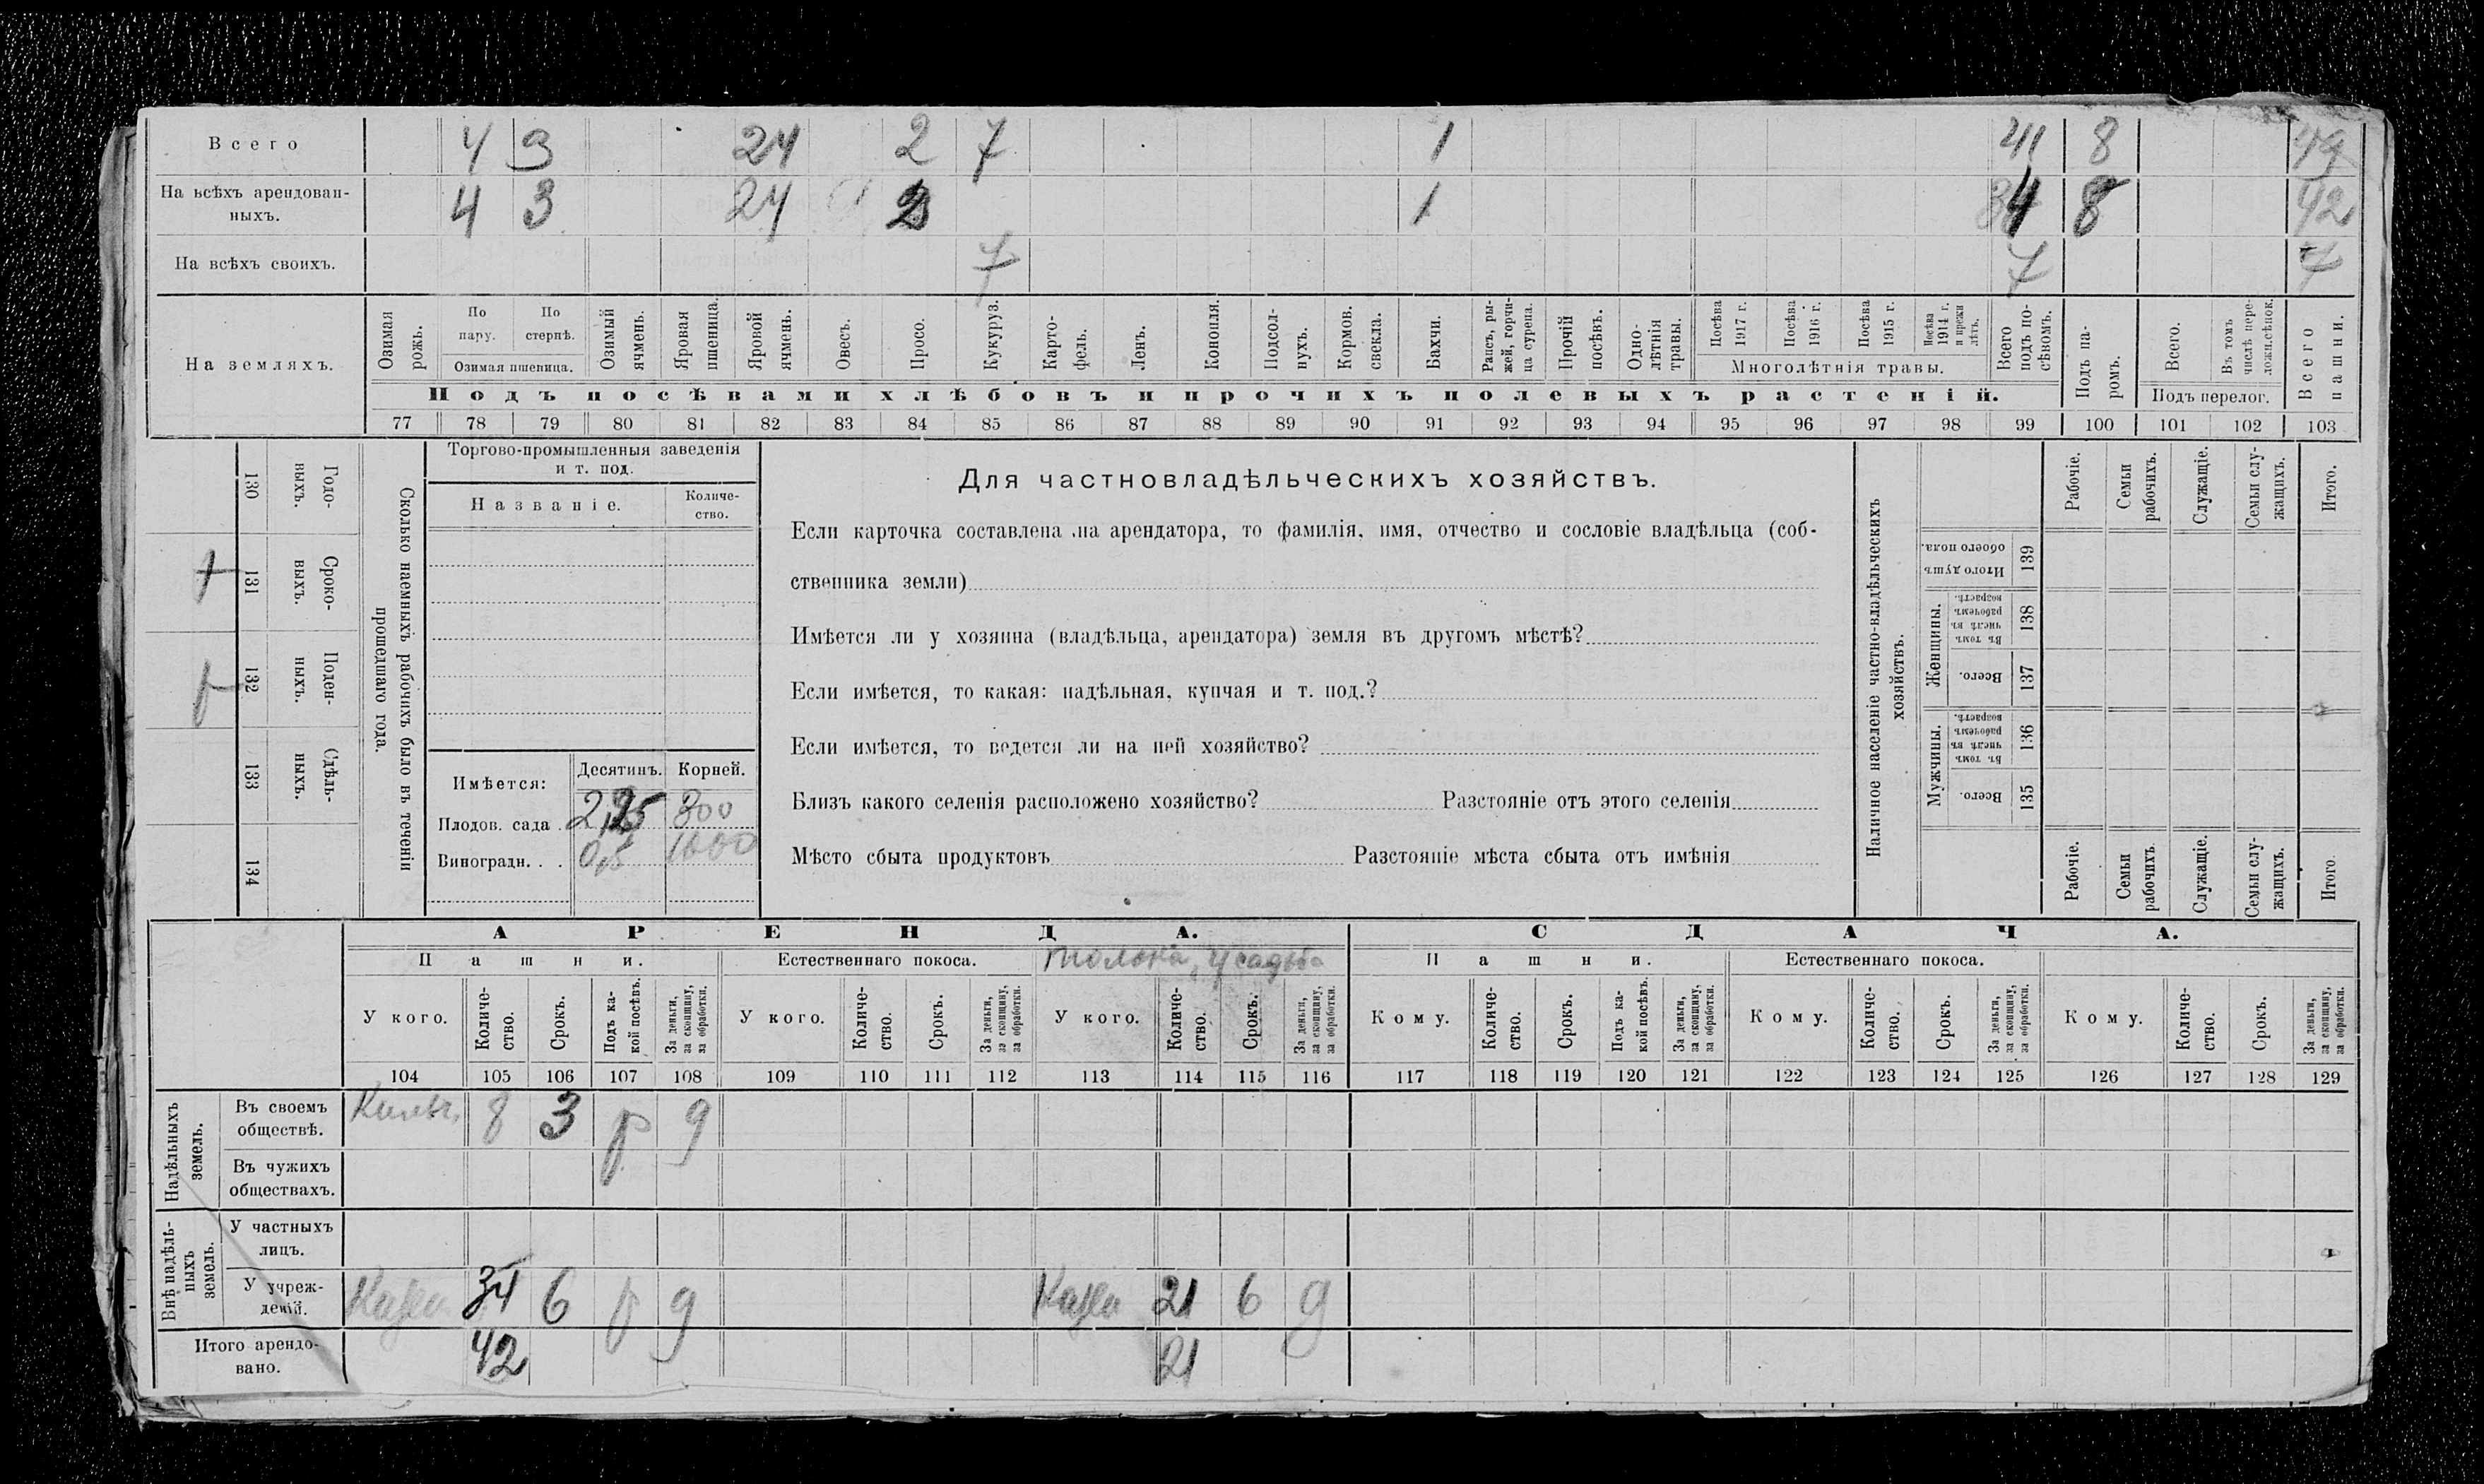 Всего 4 3 24 2 7 1 41 8 49
На всѣхъ арендован-
ныхъ. 4 3 24 2 1 34 8 42
На всѣхъ своихъ. 7 7 7
На земляхъ.
Озимая рожь.
По пару.
По стернѣ.
Озимая пшеница.
Озимый ячмень.
Яровая пшеница.
Яровой ячмень.
Овесъ.
Просо.
Кукуруз.
Карто-
фель.
Ленъ.
Конопля.
Подсол-
нухъ.
Кормов. свекла.
Бахчи.
Рапсъ, ры-
жей, горчи-
ца сурепа.
Прочій посѣвъ.
Одно-
лѣтнія травы.
Посѣва 1917 г.
Посѣва 1916 г.
Посѣва 1915 г.
Посѣва 1914 г. и прежн. лѣтъ.
Многолѣтнія травы.
Всего подъ по-
сѣвомъ.
Подъ посѣвами хлѣбовъ и прочихъ полевыхъ растеній.
Подъ па-
ромъ.
Всего.
Въ томъ числѣ пере-
ложн.сѣнок.
Подъ перелог.
Всего пашни.
77 78 79 80 81 82 83 84 85 86 87 88 89 90 91 92 93 94 95 96 97 98 99 100 101 102 103
130 Годо-
выхъ.
131 Сроко-
выхъ.
132 Поден-
ныхъ.
133 Сдѣль-
ныхъ.
134
Сколько наемныхъ рабочихъ было въ теченіи
прошедшаго года.
Торгово-промышленныя заведенія
и т. под.
Названіе.
Количе-
ство.
Имѣется: Десятинъ. Корней.
Плодов. сада . 2,25 800
Виноградн. . . 0,5 1000
Для частновладѣльческихъ хозяйствъ.
Если карточка составлена на арендатора, то фамилія, имя, отчество и сословіе владѣльца (соб-
ственника земли)
Имѣется ли у хозяина (владѣльца, арендатора) земля въ другомъ мѣстѣ?
Если имѣется, то какая: надѣльная, купчая и т. под.?
Если имѣется, то ведется ли на ней хозяйство?
Близъ какого селенія расположено хозяйство? Разстояніе отъ этого селенія
Мѣсто сбыта продуктовъ Разстояніе мѣста сбыта отъ имѣнія
Наличное населеніе частно-владѣльческихъ
хозяйствъ.
Рабочіе.
Семьи рабочихъ.
Служащіе.
Семьи слу-
жащихъ.
Итого.
Итого душъ обоего пола. 139
Женщины.
Въ томъ числѣ въ рабочемъ возрастѣ. 138
Всего. 137
Мужчины.
Въ томъ числѣ въ рабочемъ возрастѣ. 136
Всего. 135
Рабочіе.
Семьи рабочихъ.
Служащіе.
Семьи слу-
жащихъ.
Итого.
АРЕНДА. СДАЧА.
Пашни. Естественнаго покоса. толока, усадьба Пашни. Естественнаго покоса.
У кого.
Количе-
ство.
Срокъ.
Подъ ка-
кой посѣвъ.
За деньги, за скопщину, за обработки.
У кого.
Количе-
ство.
Срокъ.
За деньги, за скопщину, за обработки.
У кого.
Количе-
ство.
Срокъ.
За деньги, за скопщину, за обработки.
Кому.
Количе-
ство.
Срокъ.
Подъ ка-
кой посѣвъ.
За деньги, за скопщину, за обработки.
Кому.
Количе-
ство.
Срокъ.
За деньги, за скопщину, за обработки.
Кому.
Количе-
ство.
Срокъ.
За деньги, за скопщину, за обработки.
104 105 106 107 108 109 110 111 112 113 114 115 116 117 118 119 120 121 122 123 124 125 126 127 128 129
Надѣльныхъ земель.
Въ своемъ
обществѣ. 8 3 р д
Въ чужихъ
обществахъ.
Внѣ надѣль-
ныхъ земель.
У частныхъ
лицъ.
У учреж-
деній. Казна 34 6 р д Казна 21 6 д
Итого арендо-
вано. 42 21